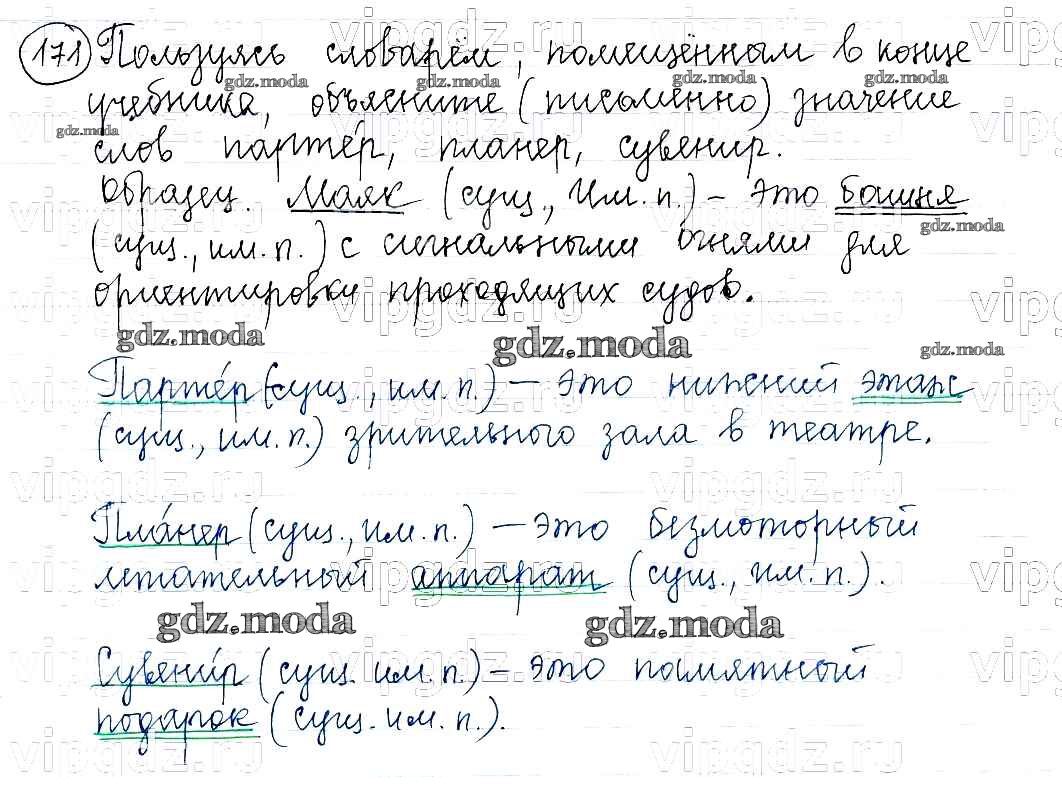 171 Пользуясь словарём, помещённым в конце
учебника, объясните (письменно) значение
слов партéр, планер, сувенир.
Образец. Маяк (сущ., Им. п.) – это башня
(сущ., им. п.) с сигнальными огнями для
ориентировки проходящих судов.
gdz.moda
Партéр (сущ., им. п.) – это нижний этаж
(сущ., им. п.) зрительного зала в театре.
Плáнер (сущ., им. п.) – это безмоторный
летательный аппарат (сущ., им. п.).
gdz.moda
Сувени́р (сущ. им. п.) – это памятный
подарок (сущ. им. п.).
vipgdz.ru